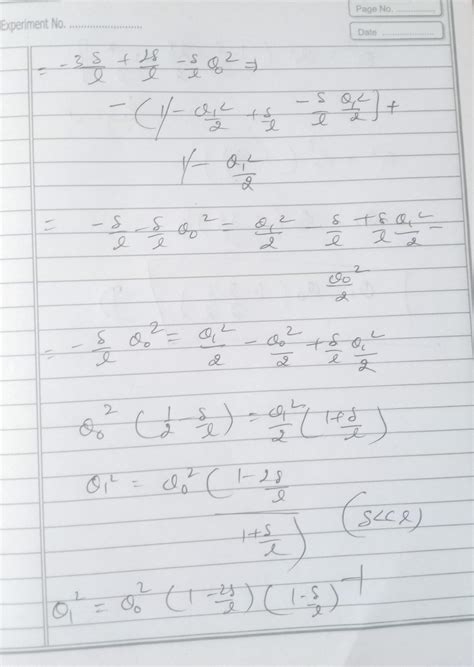 Page No. ..................
Experiment No. ........................
Date ..................
= -3 δ/l + 2δ/l - δ/l θ₀² ⇒
- (1 - θ₁²/2 + δ/l - δ/l θ₁²/2) +
1 - θ₁²/2
= -δ/l - δ/l θ₀² = θ₁²/2 - δ/l + δ/l θ₁²/2 -
θ₀²/2
= - δ/l θ₀² = θ₁²/2 - θ₀²/2 + δ/l θ₁²/2
θ₀² (1/2 - δ/l) = θ₁²/2 (1 + δ/l)
θ₁² = θ₀² (1 - 2δ/l / 1 + δ/l) (δ << l)
θ₁² = θ₀² (1 - 2δ/l) (1 - δ/l)⁻¹